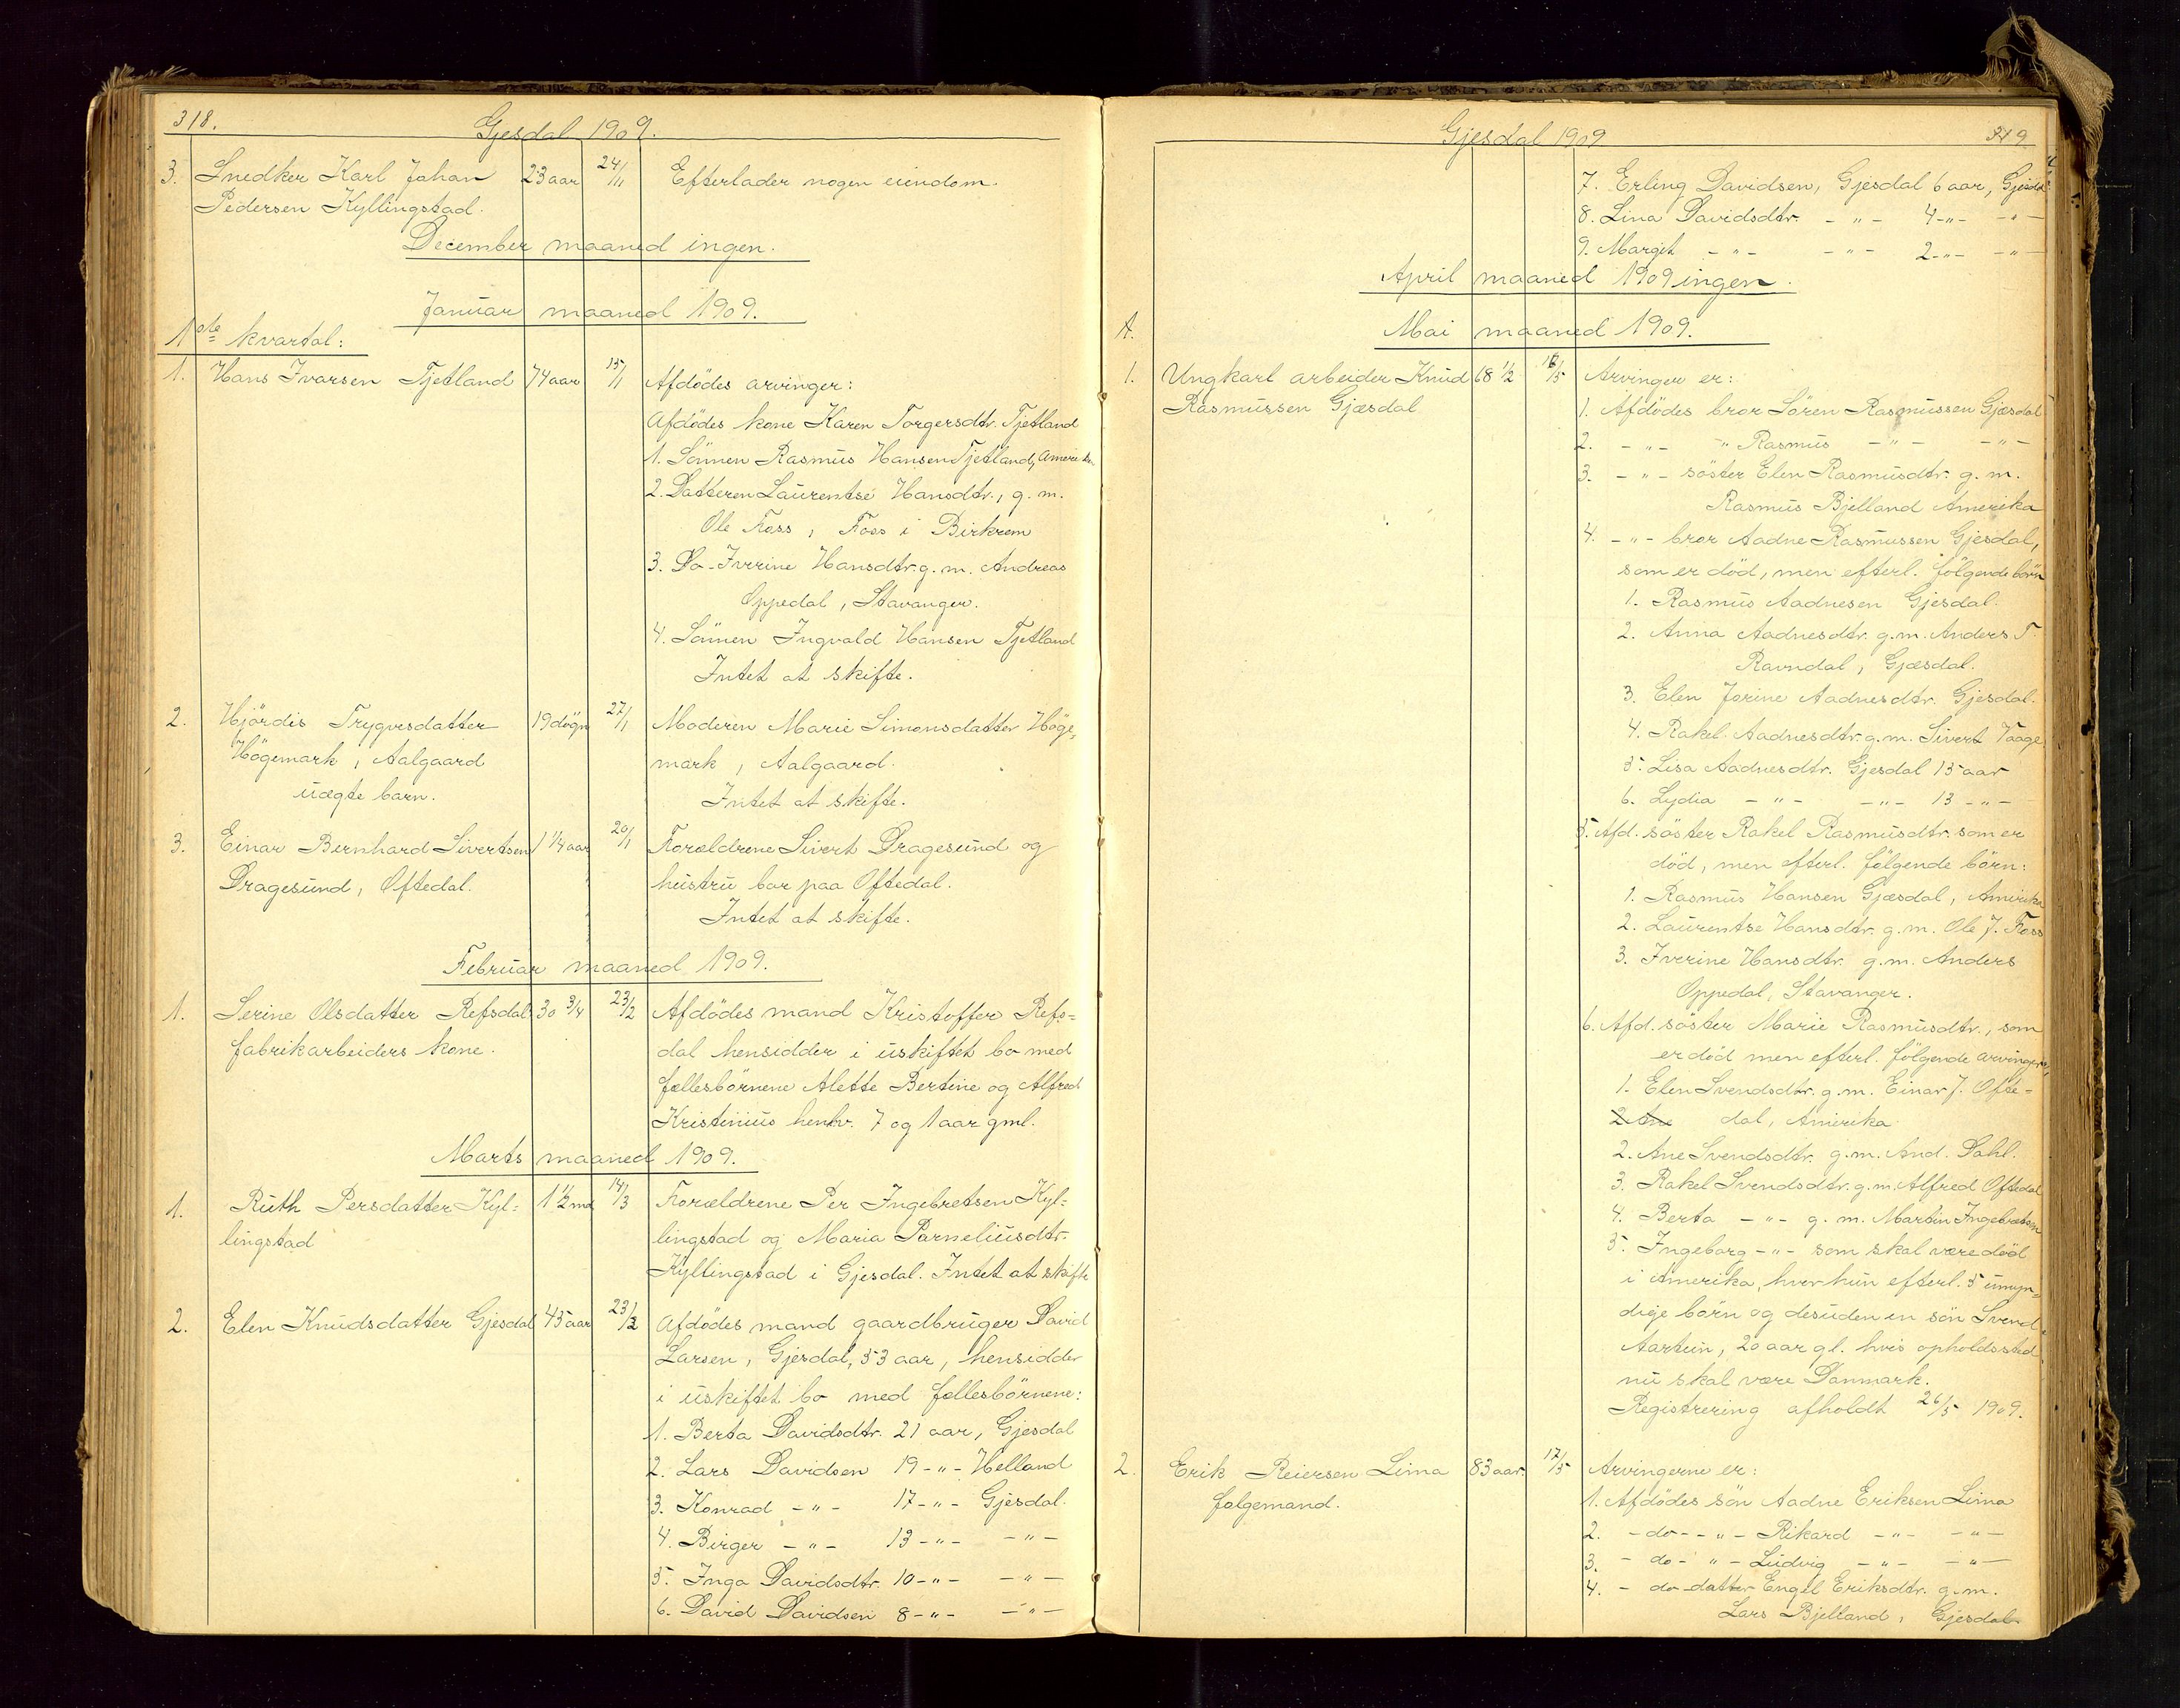 318.
Gjesdal 1909.
3. Snedker Karl Johan 23 aar 24/11 Efterlader nogen eiendom.
Pedersen Kyllingstad.
December maaned ingen.
Januar maaned 1909.
1ste kvartal:
1. Hans Ivarsen Tjetland 74 aar 15/1 Afdödes arvinger:
Afdödes kone Karen Torgersdtr. Tjetland
1. Sönnen Rasmus Hansen Tjetland, Amerika
2. Datteren Laurentse Hansdtr., g. m.
Ole Foss, Foss i Birkrem
3. Do - Iverine Hansdtr. g. m. Andreas
Oppedal, Stavanger.
4. Sönnen Ingvald Hansen Tjetland
Intet at skifte.
2. Hjördis Trygvesdatter 19 dögn 27/1 Moderen Marie Simonsdatter Höge-
Högemark, Aalgaard mark, Aalgaard.
uægte barn. Intet at skifte.
3. Einar Bernhard Sivertsen 1 1/4 aar 20/1 Forældrene Sivert Dragesund og
Dragesund, Oftedal. hustru bor paa Oftedal.
Intet at skifte.
Februar maaned 1909.
1. Serine Olsdatter Refsdal 30 3/4 23/2 Afdödes mand Kristoffer Refs-
fabrikarbeiders kone. dal hensidder i uskiftet bo med
fællesbörnene Alette Bertine og Alfred
Kristinius henhv. 7 og 1 aar gml.
Marts maaned 1909.
1. Ruth Persdatter Kyl- 1 1/2 md 14/3 Forældrene Per Ingebretsen Kyl-
lingstad lingstad og Maria Parneliusdtr.
Kyllingstad i Gjesdal. Intet at skifte
2. Elen Knudsdatter Gjesdal 45 aar 23/3 Afdödes mand gaardbruger David
Larsen, Gjesdal, 53 aar, hensidder
i uskiftet bo med fællesbörnene:
1. Berta Davidsdtr. 21 aar, Gjesdal
2. Lars Davidsen 19 -"- Helland
3. Konrad -"- 17 -"- Gjesdal.
4. Birger -"- 13 -"- -"-
5. Inga Davidsdtr. 10 -"- -"-
6. David Davidsen 8 -"- -"-
Gjesdal 1909
319.
7. Erling Davidsen, Gjesdal 6 aar, Gjesdal
8. Lina Davidsdtr. -"- 4 -"- -"-
9. Margit -"- -"- 2 -"- -"-
April maaned 1909 ingen.
A. Mai maaned 1909.
1. Ungkarl arbeider Knud 68 1/2 16/5 Arvinger er:
Rasmussen Gjæsdal 1. Afdödes bror Sören Rasmussen Gjæsdal
2. -"- " Rasmus -"- -"-
3. -"- söster Elen Rasmusdtr. g. m.
Rasmus Bjelland Amerika
4. -"- bror Aadne Rasmussen Gjesdal,
som er död, men efterl. fölgende börn
1. Rasmus Aadnesen Gjesdal.
2. Anna Aadnesdtr. g. m. Anders T.
Ravndal, Gjæsdal.
3. Elen Jorine Aadnesdtr. Gjesdal.
4. Rakel Aadnesdtr. g. m. Sivert Vaage
5. Lisa Aadnesdtr. Gjesdal 15 aar
6. Lydia -"- -"- 13 -"-
5. Afd. söster Rakel Rasmusdtr. som er
död, men efterl. fölgende börn:
1. Rasmus Hansen Gjæsdal, Amerika
2. Laurentse Hansdtr. g. m. Ole J. Foss
3. Iverine Hansdtr. g. m. Anders
Oppedal, Stavanger.
6. Afd. söster Marie Rasmusdtr., som
er död men efterl. fölgende arvinger,
1. Elen Svendsdtr. g. m. Einar J. Ofte-
2. Ane dal, Amerika
2. Ane Svendsdtr. g. m. And. Dahl.
3. Rakel Svendsdtr. g. m. Alfred Oftedal
4. Berta -"- g. m. Martin Ingebretsen
5. Ingeborg -"- som skal være död
i Amerika, hvor hun efterl. 5 umyn-
dige börn og desuden en sön Svend
Aartun, 20 aar gl. hvis opholdssted
nu skal være Danmark.
Registrering afholdt 26/5 1909.
2. Erik Reiersen Lima 83 aar. 17/5 Arvingerne er:
folgemand. 1. Afdödes sön Aadne Eriksen Lima
2. - do - -"- Rikard -"- -"-
3. - do - " - Ludvig -"- -"-
4. - do - datter Engel Eriksdtr. g. m.
Lars Bjelland, Gjesdal.